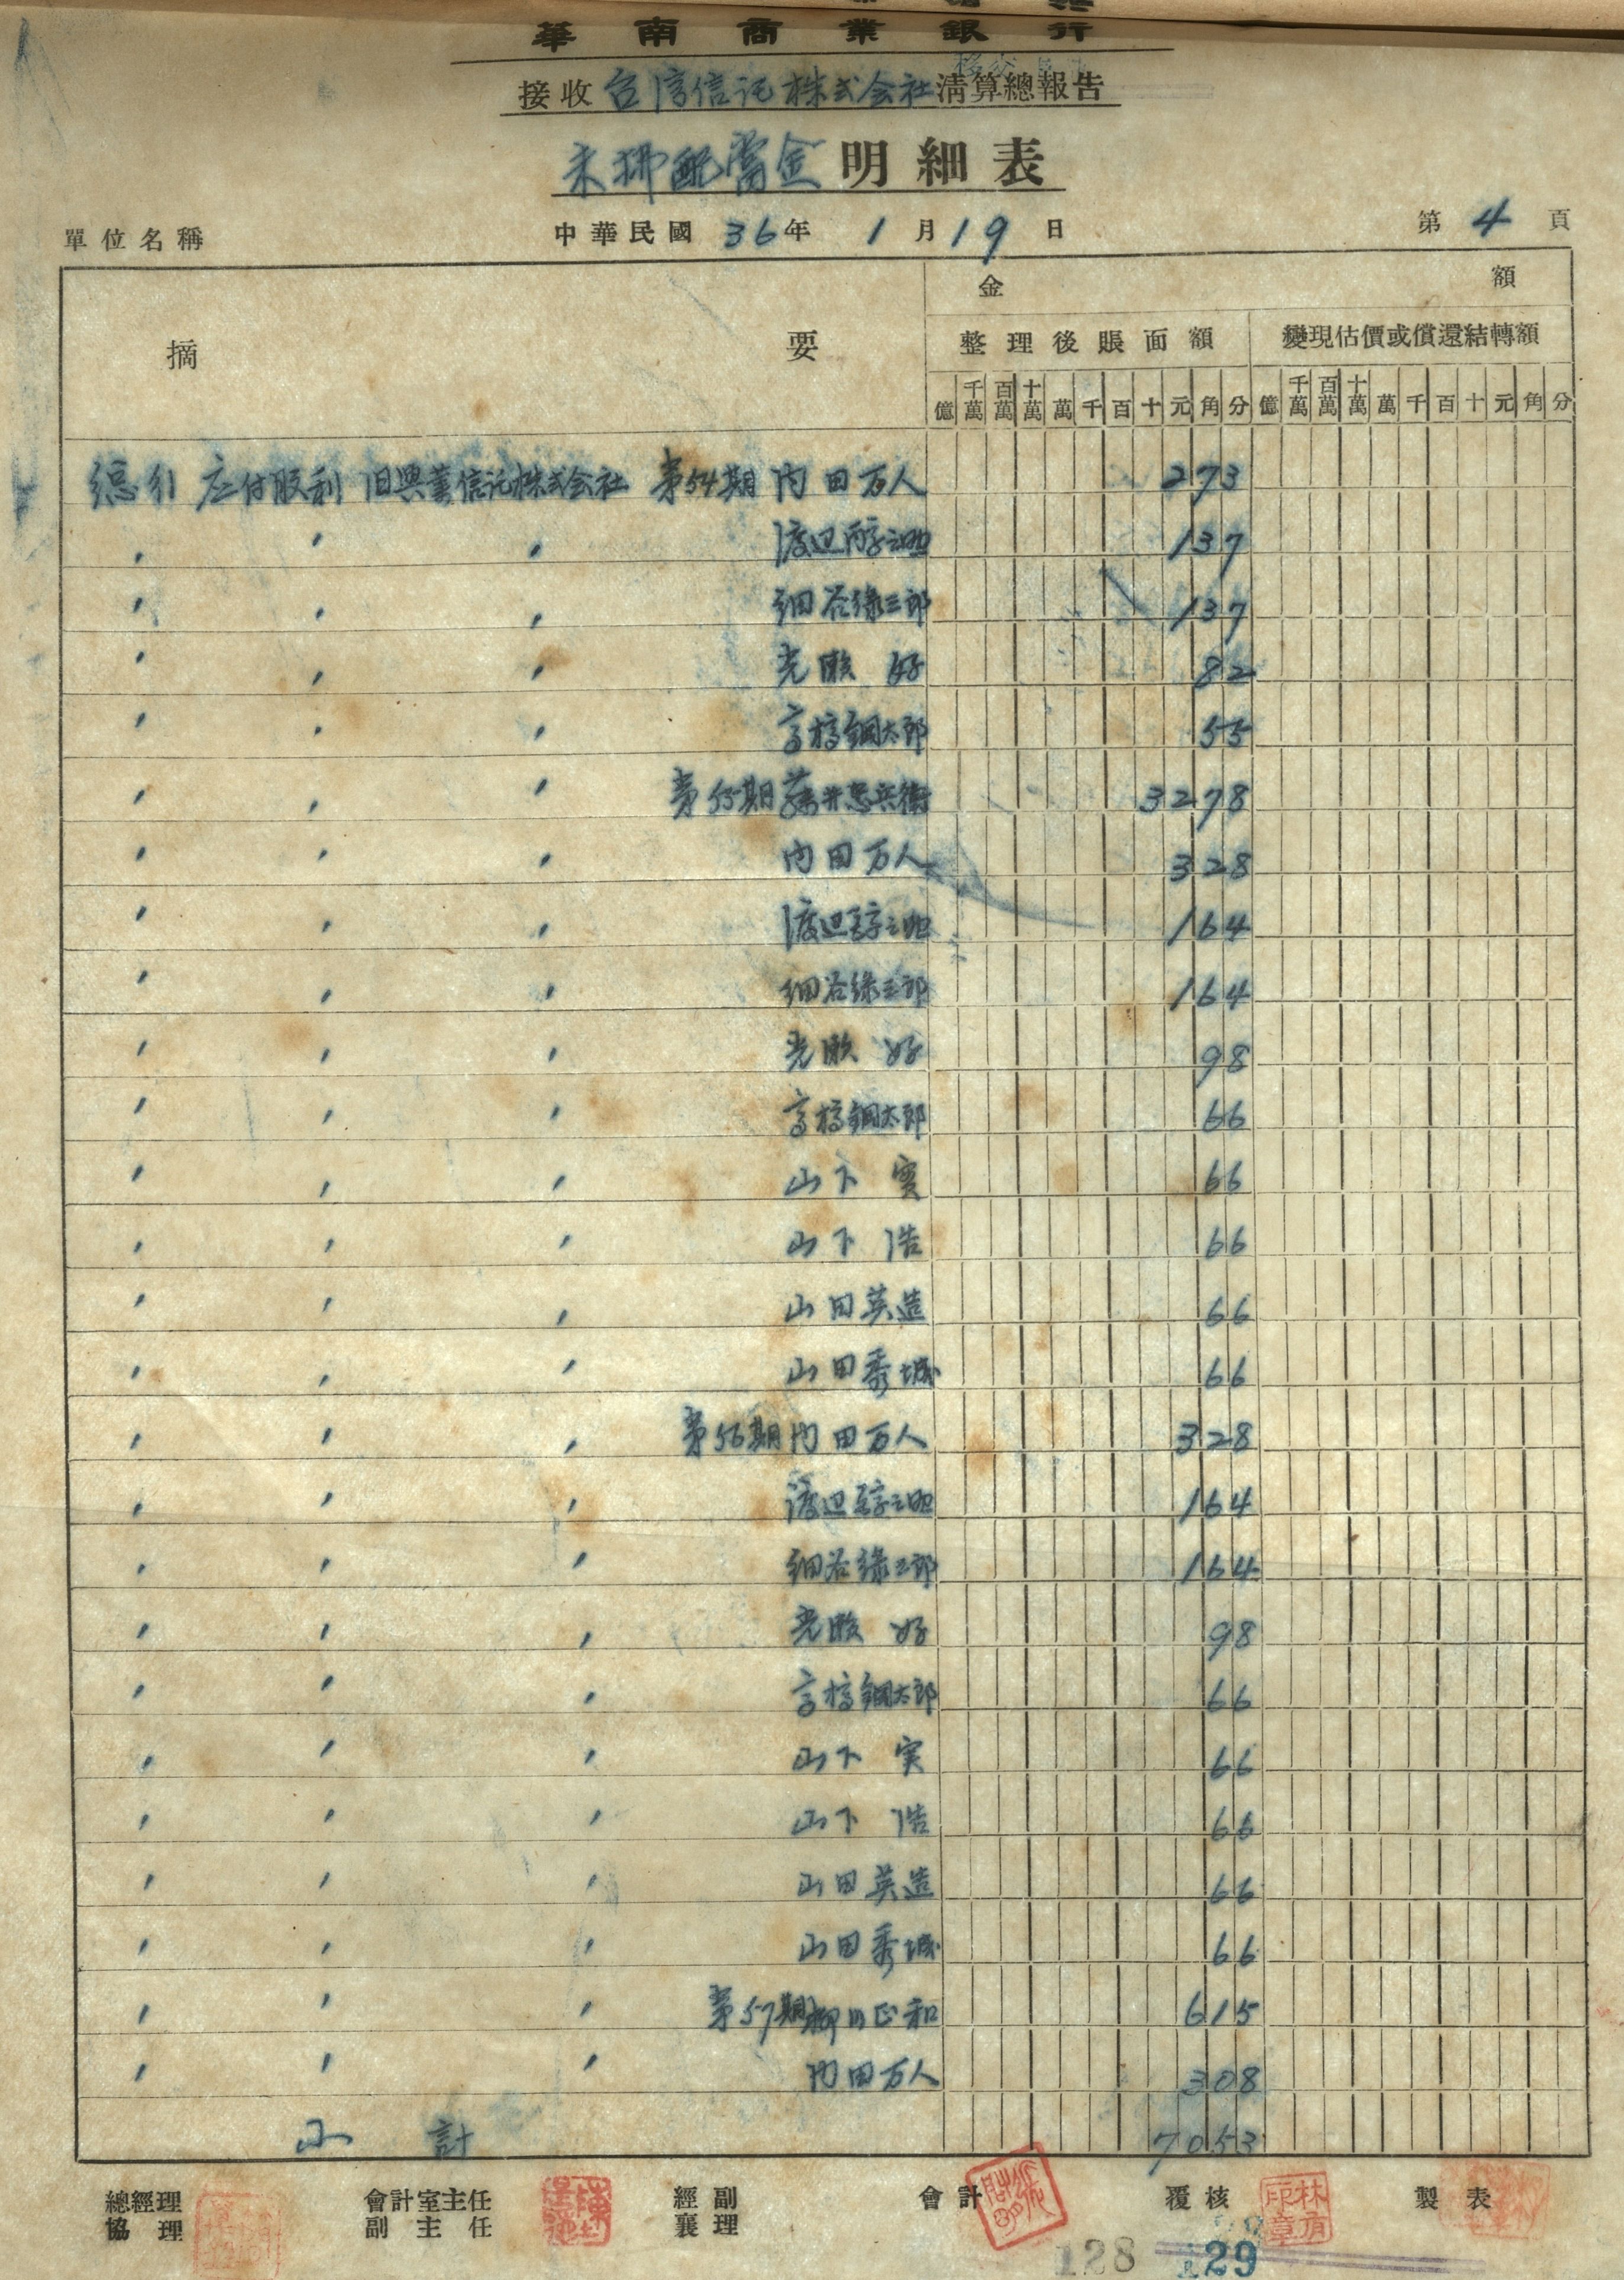 華南商業銀行
接收台湾信託株式会社清算總報告
未拂配當金明細表
單位名稱 中華民國36年1月19日 第4頁
摘要 金額
整理後賬面額 變現估價或償還結轉額
億 千萬 百萬 十萬 萬 千 百 十 元 角 分 億 千萬 百萬 十萬 萬 千 百 十 元 角 分
總行 应付股利 旧興業信託株式会社 第54期 内田万人 273
〃 〃 〃 渡辺醇之助 137
〃 〃 〃 細谷綠三郎 137
〃 〃 〃 光瀬 好 82
〃 〃 〃 高橋鋼太郎 55
〃 〃 〃 第55期 藤井忠兵衛 3278
〃 〃 〃 内田万人 328
〃 〃 〃 渡辺醇之助 164
〃 〃 〃 細谷綠三郎 164
〃 〃 〃 光瀬 好 98
〃 〃 〃 高橋鋼太郎 66
〃 〃 〃 山下 實 66
〃 〃 〃 山下 浩 66
〃 〃 〃 山田英造 66
〃 〃 〃 山田秀城 66
〃 〃 〃 第56期 内田万人 328
〃 〃 〃 渡辺醇之助 164
〃 〃 〃 細谷綠三郎 164
〃 〃 〃 光瀬 好 98
〃 〃 〃 高橋鋼太郎 66
〃 〃 〃 山下 実 66
〃 〃 〃 山下 浩 66
〃 〃 〃 山田英造 66
〃 〃 〃 山田秀城 66
〃 〃 〃 第57期 柳川正和 615
〃 〃 〃 内田万人 308
小計 7053
總經理 會計室主任 經副 會計 覆核 製表
協理 副主任 襄理
林
印章
128 129